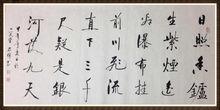 日照香爐
生紫煙遙
看瀑布掛
前川飛流
直下三千
尺疑是銀
河落九天